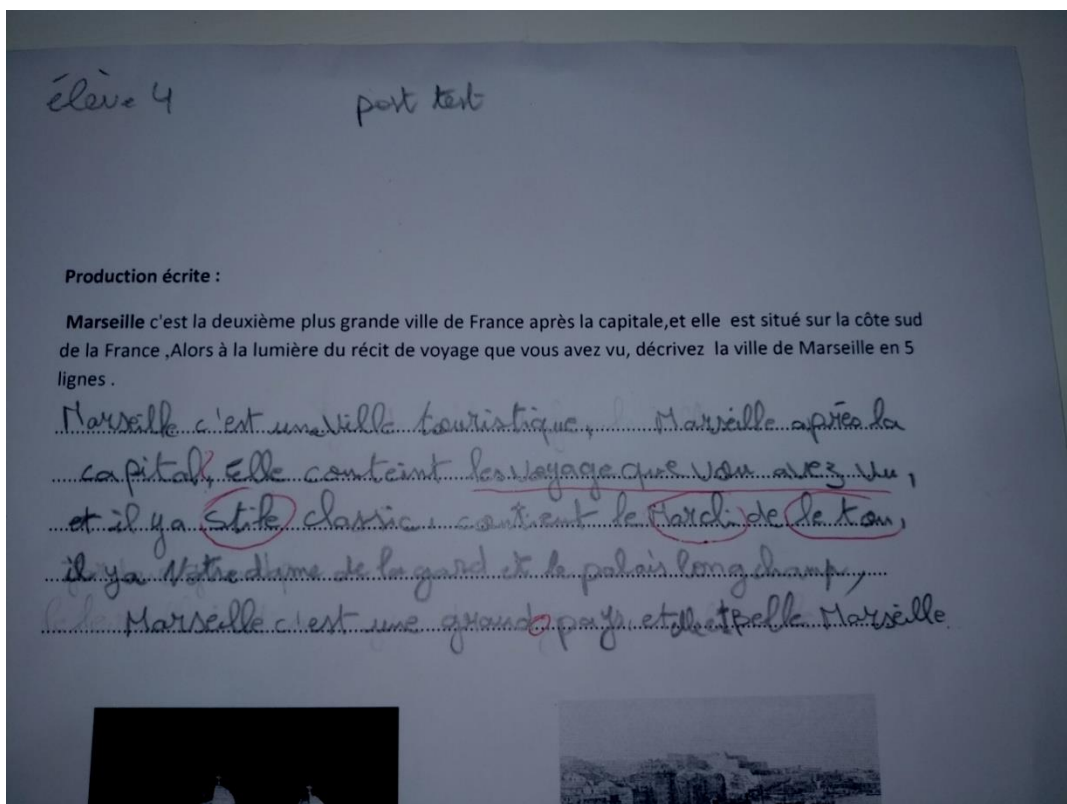 élève 4 post test
Production écrite :
Marseille c'est la deuxième plus grande ville de France après la capitale,et elle est situé sur la côte sud
de la France ,Alors à la lumière du récit de voyage que vous avez vu, décrivez la ville de Marseille en 5
lignes .
Marseille c'est une ville touristique, Marseille après la
capital, Elle conteint les voyage que vou avez vu,
et il ya stile classic, contient le March de le ton,
il ya Notre dame de la gard et le palais longchamp,
Marseille c'est une grand pays, et elle belle Marseille